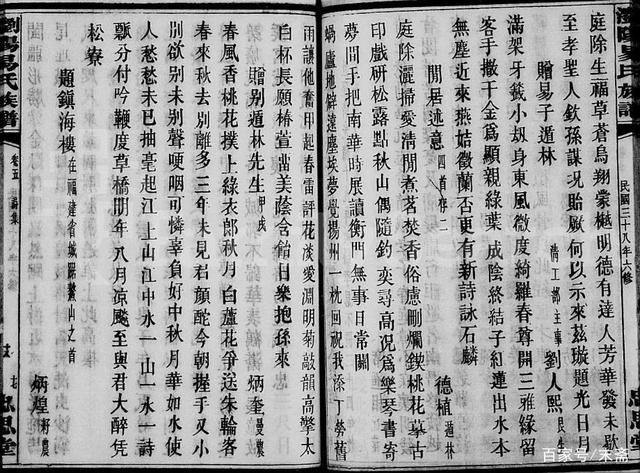 民國三十八年六修
庭除生福草蒼烏翔蒙樾明德有達人芳華發未歇
至孝聖人欽孫謀況貽厥何以示來茲璇題光日月
贈易子遁林 清工部主事劉人熙艮生
滿架牙籤小刼身東風微度綺羅春尊開三雅緣留
客手撒千金爲顯親綠葉成陰終結子紅蓮出水本
無塵近來燕姞徵蘭否更有新詩詠石麟
閒居述意 四首存二 德植遁林
庭除灑掃愛清閒煮茗焚香俗慮刪爛鍥桃花摹古
印戲研松露點秋山偶隨釣奕尋高況爲樂琴書寄
夢間手把南華時展讀衡門無事日常關
蝸廬地僻遠塵埃夢覺楊州一枕回祝我添丁勞舊
雨讓他奮甲起春雷評花淡愛淵明菊敲韻高擎太
白杯長願椿萱畱美蔭含飴日樂抱孫來
贈別遁林先生 甲戌 炳奎蔓農
春風香桃花撲上綠衣郎秋月白蘆花爭送朱輪客
春來秋去別離多三年未見君顏酡今朝握手又小
別欲別未別聲哽咽可憐辜負好中秋月華如水使
人愁愁未已抽毫起江上山江中水一山一水一詩
瓢分付吟鞭度草橋明年八月涼飈至與君大醉凭
松寮
題鎮海樓 在福建省城屏鰲山之首 炳煌耔農
瀏陽易氏族譜 卷五 詩集 思思堂
百家号/朱斋